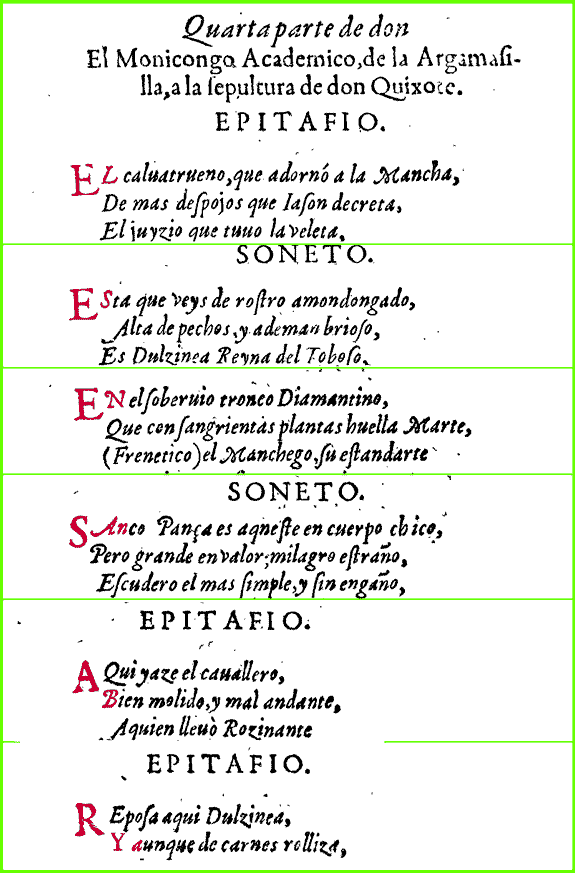 Quarta parte de don
El Monicongo Academico, de la Argamaſi-
lla, a la ſepultura de don Quixote.
EPITAFIO.
EL caluatrueno, que adornó a la Mancha,
De mas deſpojos que Iaſon decreta,
El juyzio que tuuo la veleta,
SONETO.
ESta que veys de roſtro amondongado,
Alta de pechos, y ademan brioſo,
Es Dulzinea Reyna del Toboſo,
EN el ſoberuio tronco Diamantino,
Que con ſangrientas plantas huella Marte,
(Frenetico) el Manchego, ſu eſtandarte
SONETO.
SAnco Pança es aqueſte en cuerpo chico,
Pero grande en valor, milagro eſtraño,
Eſcudero el mas ſimple, y ſin engaño,
EPITAFIO.
AQui yaze el cauallero,
Bien molido, y mal andante,
A quien lleuò Rozinante
EPITAFIO.
REpoſa aqui Dulzinea,
Y aunque de carnes rolliza,